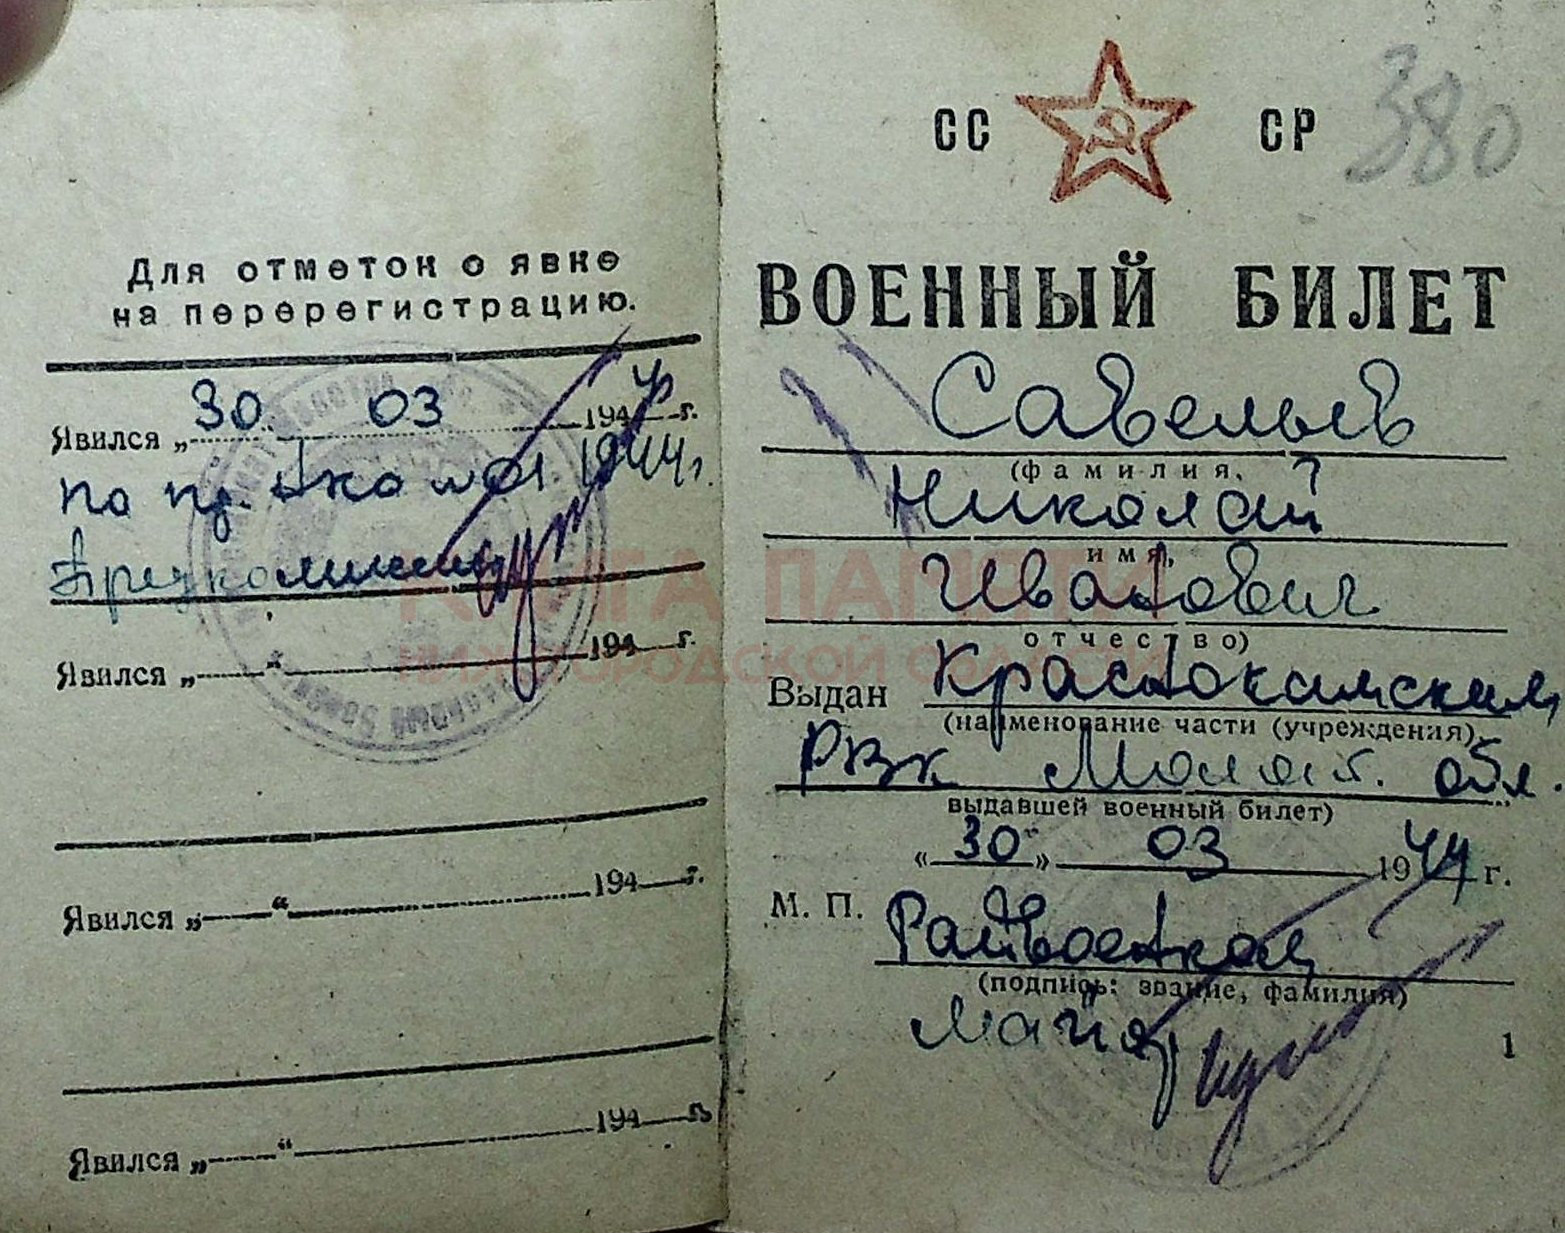 Для отметок о явке
на перерегистрацию.
Явился „30“ 03 1944 г.
по пр. 1944 г.
Явился „ “ 194 г.
Явился „ “ 194 г.
Явился „ “ 194 г.
СС СР
380
ВОЕННЫЙ БИЛЕТ
Савельев
(фамилия,
Николай
имя,
Иванович
отчество)
Выдан Краснокамским
(наименование части (учреждения),
РВК Молот. обл.
выдавшей военный билет)
«30» 03 1944 г.
М. П. Райвоенком
(подпись: звание, фамилия)
майор
1
КНИГА ПАМЯТИ
НИЖЕГОРОДСКОЙ ОБЛАСТИ